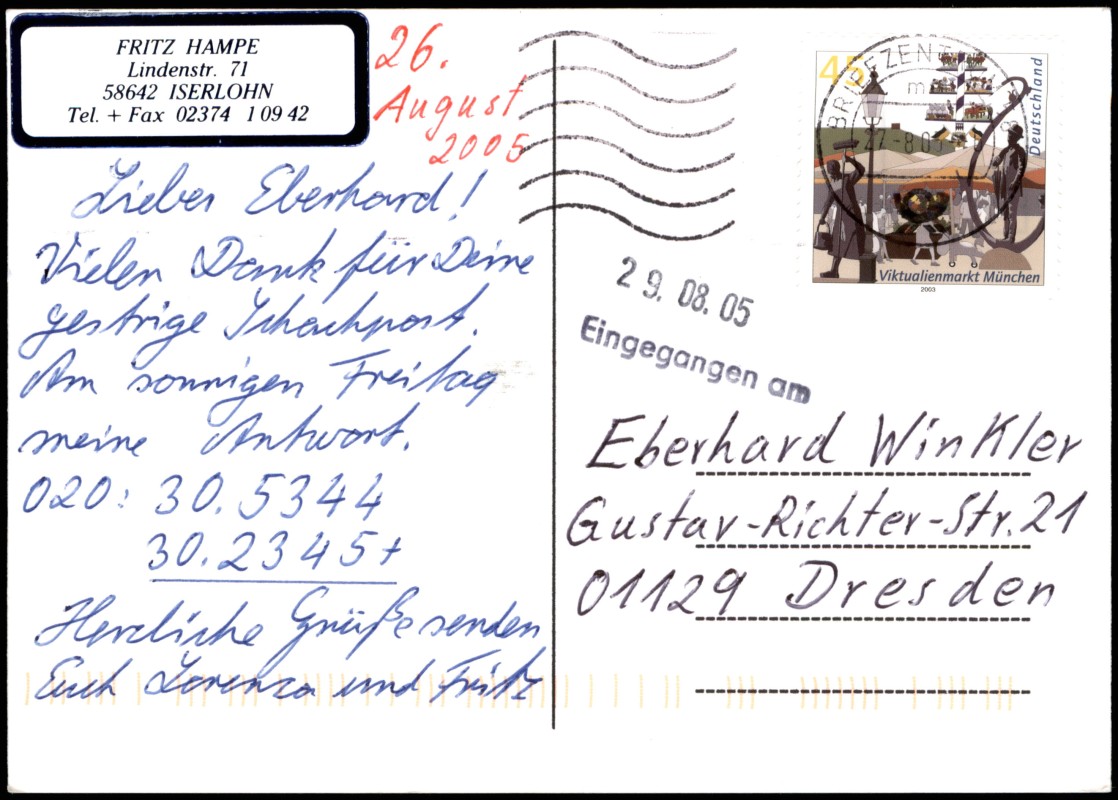 FRITZ HAMPE
Lindenstr. 71
58642 ISERLOHN
Tel. + Fax 02374 1 09 42
26.
August
2005
Lieber Eberhard!
Vielen Dank für Deine
gestrige Schachpost.
Am sonnigen Freitag
meine Antwort.
020: 30. 5344
30. 2345+
Herzliche Grüße senden
Euch Lorenza und Fritz
45
Deutschland
BRIEFZENT
Viktualienmarkt München
2003
29. 08. 05
Eingegangen am
Eberhard Winkler
Gustav-Richter-Str. 21
01129 Dresden